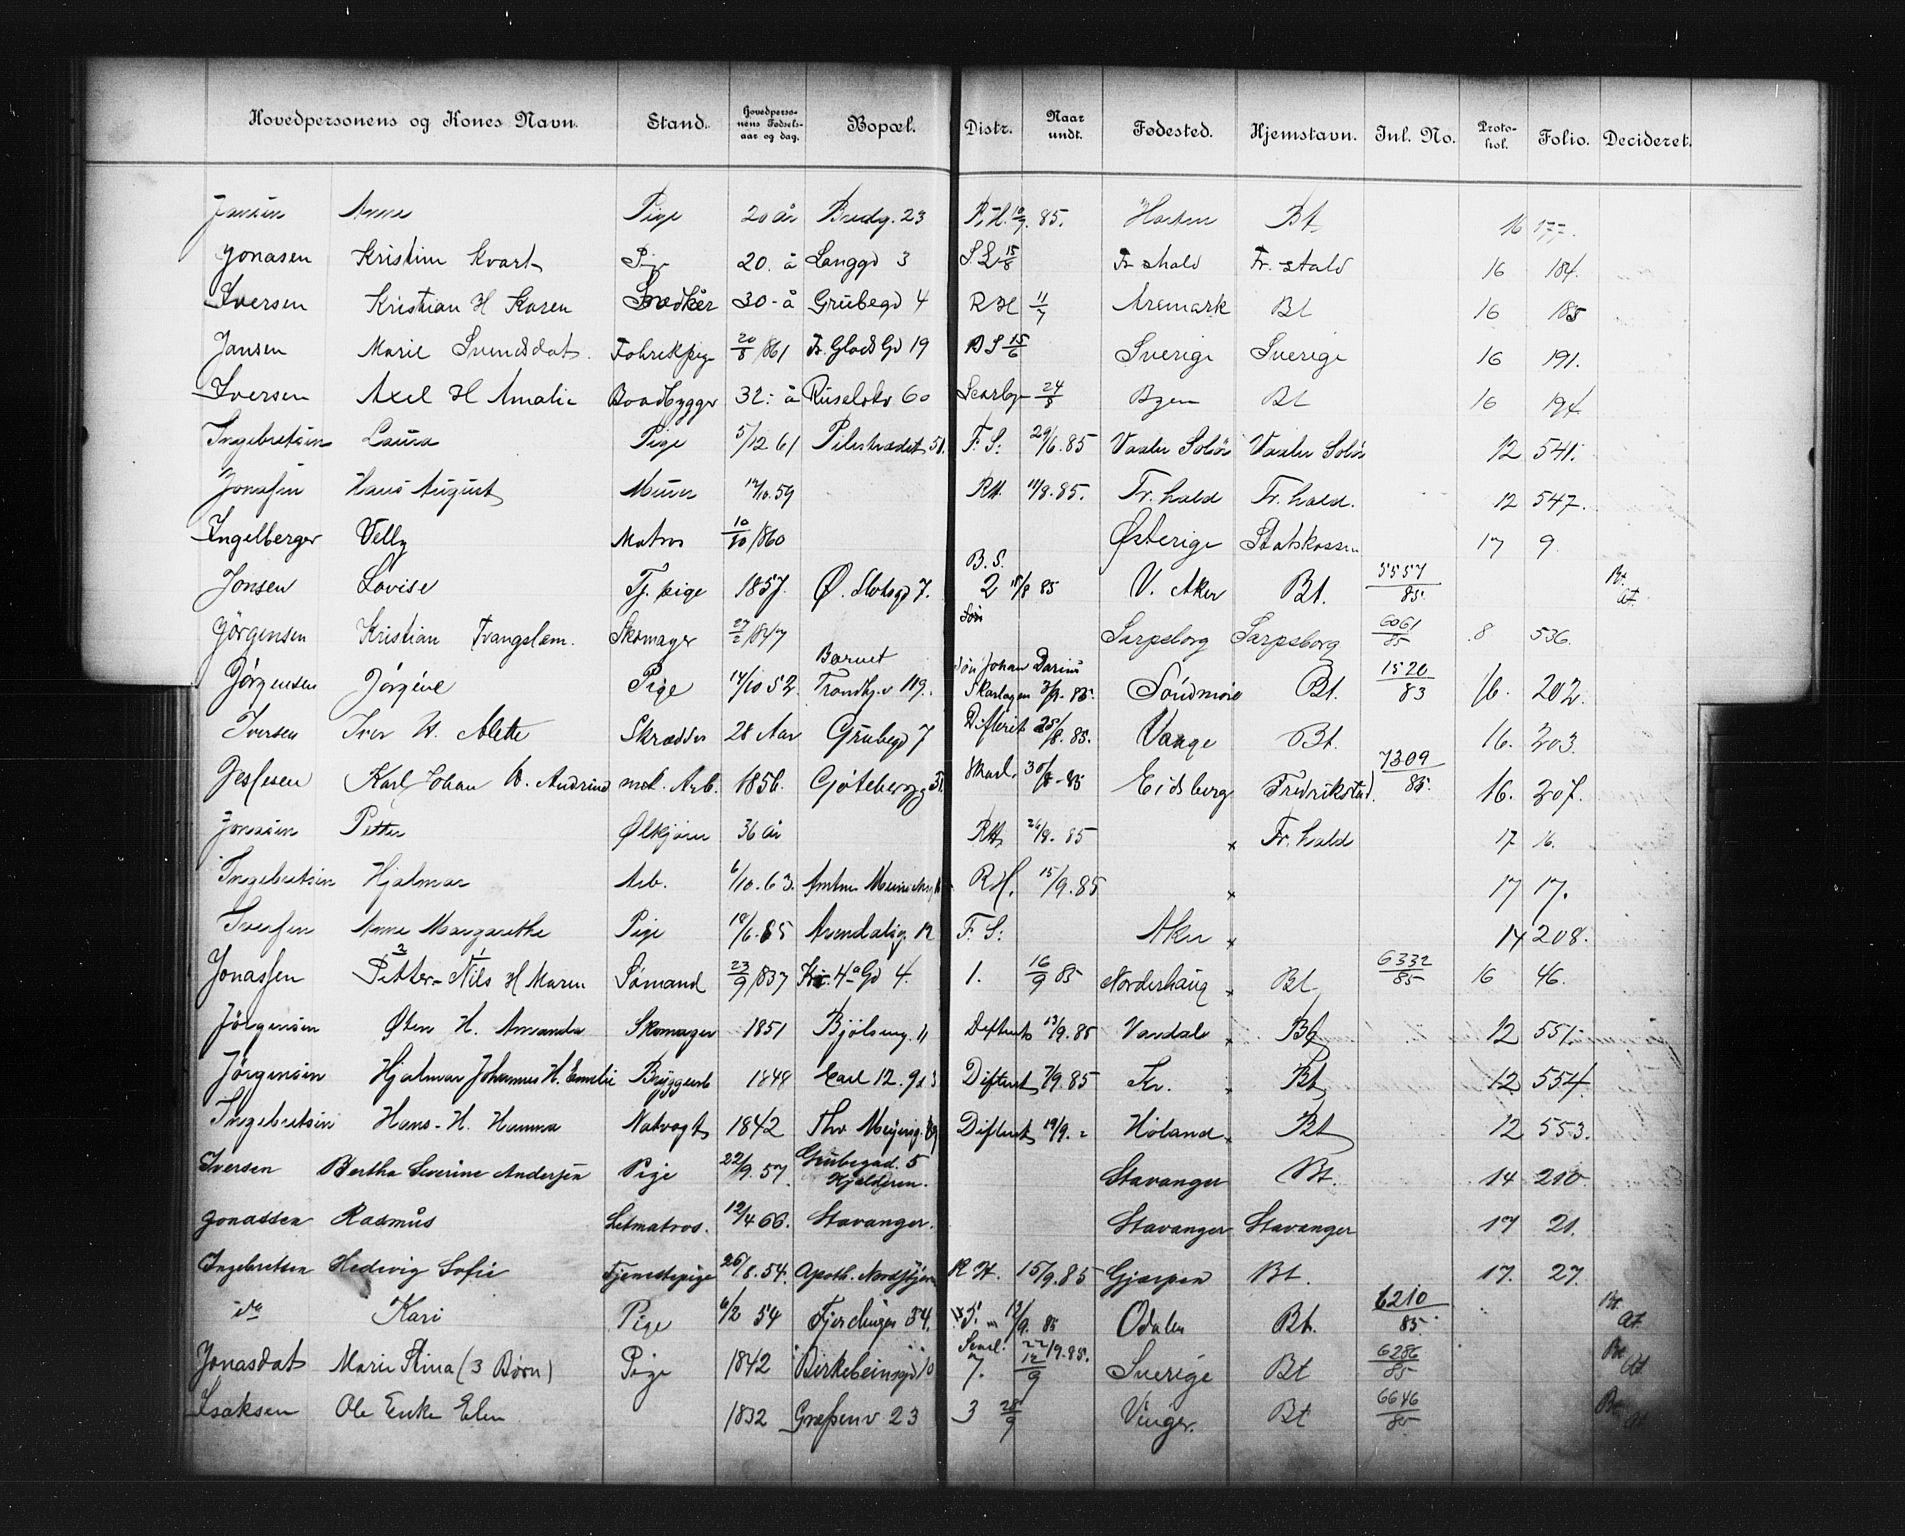 Hovedpersonens og Kones Navn. Stand. Hovedpersonens Fødselsaar og dag. Bopæl. Distr. Naar undt. Fødested. Hjemstavn. Inl. No. Protokol. Folio. Decideret.
Jansen Anne Pige 20 år Bredg. 23 R.H. 10/9. 85. Bt. 16 177.
Jonasen Kristine Kvart Pige 20. å Langgd 3 15/8 Fr. Hald Fr. Hald 16 184.
Iversen Kristian H Karen Snedker 30 - å Grubegd 4 RH 11/7 Aremark Bt 16 185
Jansen Marie Svendsdat. Fabrekpige 20/8 1861 19 15/6 Sverige Sverige 16 191.
Iversen Axel H Amalie Baadbygger 32: å Ruseløkv 60 24/8 Byen Bt 16 194
Ingebretsen Laura Pige 5/12 61 Pilestrædet 51. F. S: 29/6. 85 Vaaler Solør Vaaler Solør 12 541.
Jonasen Hans August Murer 59 RH. 11/8. 85. Fr. hald Fr. hald. 12 547.
Ingelberger Velly Matros 10/10 1860 Østerige Statskassen 17 9.
Jonsen Lovise Tj. pige 1857. Ø. Slotsgd 7. B. S. 2 15/8 85 V. Aker Bt. 5557/85. Bt. At.
Jørgensen Kristian Trangslem. Skomager 27/2 1847 Søn Sarpsborg Sarpsborg 6061/85 8 536.
Jørgensen Jørgine Pige 14/10 52. Barnet Trondhj. v 119. Søn Johan Darius Skarlagen 3/9. 85. Søndmøre Bt. 1520/83 16. 202.
Iversen Iver H. Alette Skrædder 28 Aar Grubegd 7 Difterit 25/8. 85. Vange Bt. 16. 203.
Jessesen Karl Johan H. Andrine mek. Arb. 1856. Gøtebergg 31. Skarl. 30/8 - 85 Eidsberg Fredrikstad. 7309/85. 16. 207.
Jonasen Petter Ølkjører 36 år RH 26/8. 85 × Fr. hald 17 16.
Ingebretsen Hjalmar Arb. 6/10. 63. R.H. 15/9. 85 × 17 17.
Iversen Anne Margarethe Pige 18/6. 65 Arendalsg. 12 F. S: Aker × 14 208.
Jonassen Petter - Nils H Maren Sømand 23/9 1837 4. 1. 16/9 85 Norderhaug Bt 6332/85 16 46.
Jørgensen Sten H. Amanda Skomager 1851 Bjølseng. 11 Difterit 13/9. 85 Vardal Bt 12 551.
Jørgensen Hjalmar Johannes H. Emelie Bryggearb 1849 Carl 12. gd 3 Difterit 7/9. 85 Kr. Bt 12 554.
Ingebretsen Hans - H. Hanna Natvagt 1842 Thv Meyersg. 89 Difterit 19/9. - Høland Bt 12 553.
Iversen Bertha Severine Andersen Pige 22/9. 57. Grubegad. 5 Kjelderen. Stavanger Bt. 14 210.
Jonassen Rasmus Letmatros. 12/4 66. Stavanger. Stavanger Stavanger 17 21.
Ingebretsen Hedevig Sofie Tjenestepige 26/8. 54. Apoth. R.H. 15/9. 85 Gjerpen Bt. 17. 27.
do Kari Pige 6/2 54 Fjerdingen 34. 12/9. 85 Odalen Bt. 6210/85. Bt. At.
Jonasdat Marie Stina (3 Børn) Pige 1842 Birkebeinergd 10 Scarl. 22/9. 85. 7. 12/9 Sverige Bt 6286/85 Bt At
Isaksen Ole Enke Elen 1832 Grefsenv 23 3 28/9 Vinger. Bt 6646/85 Bt At